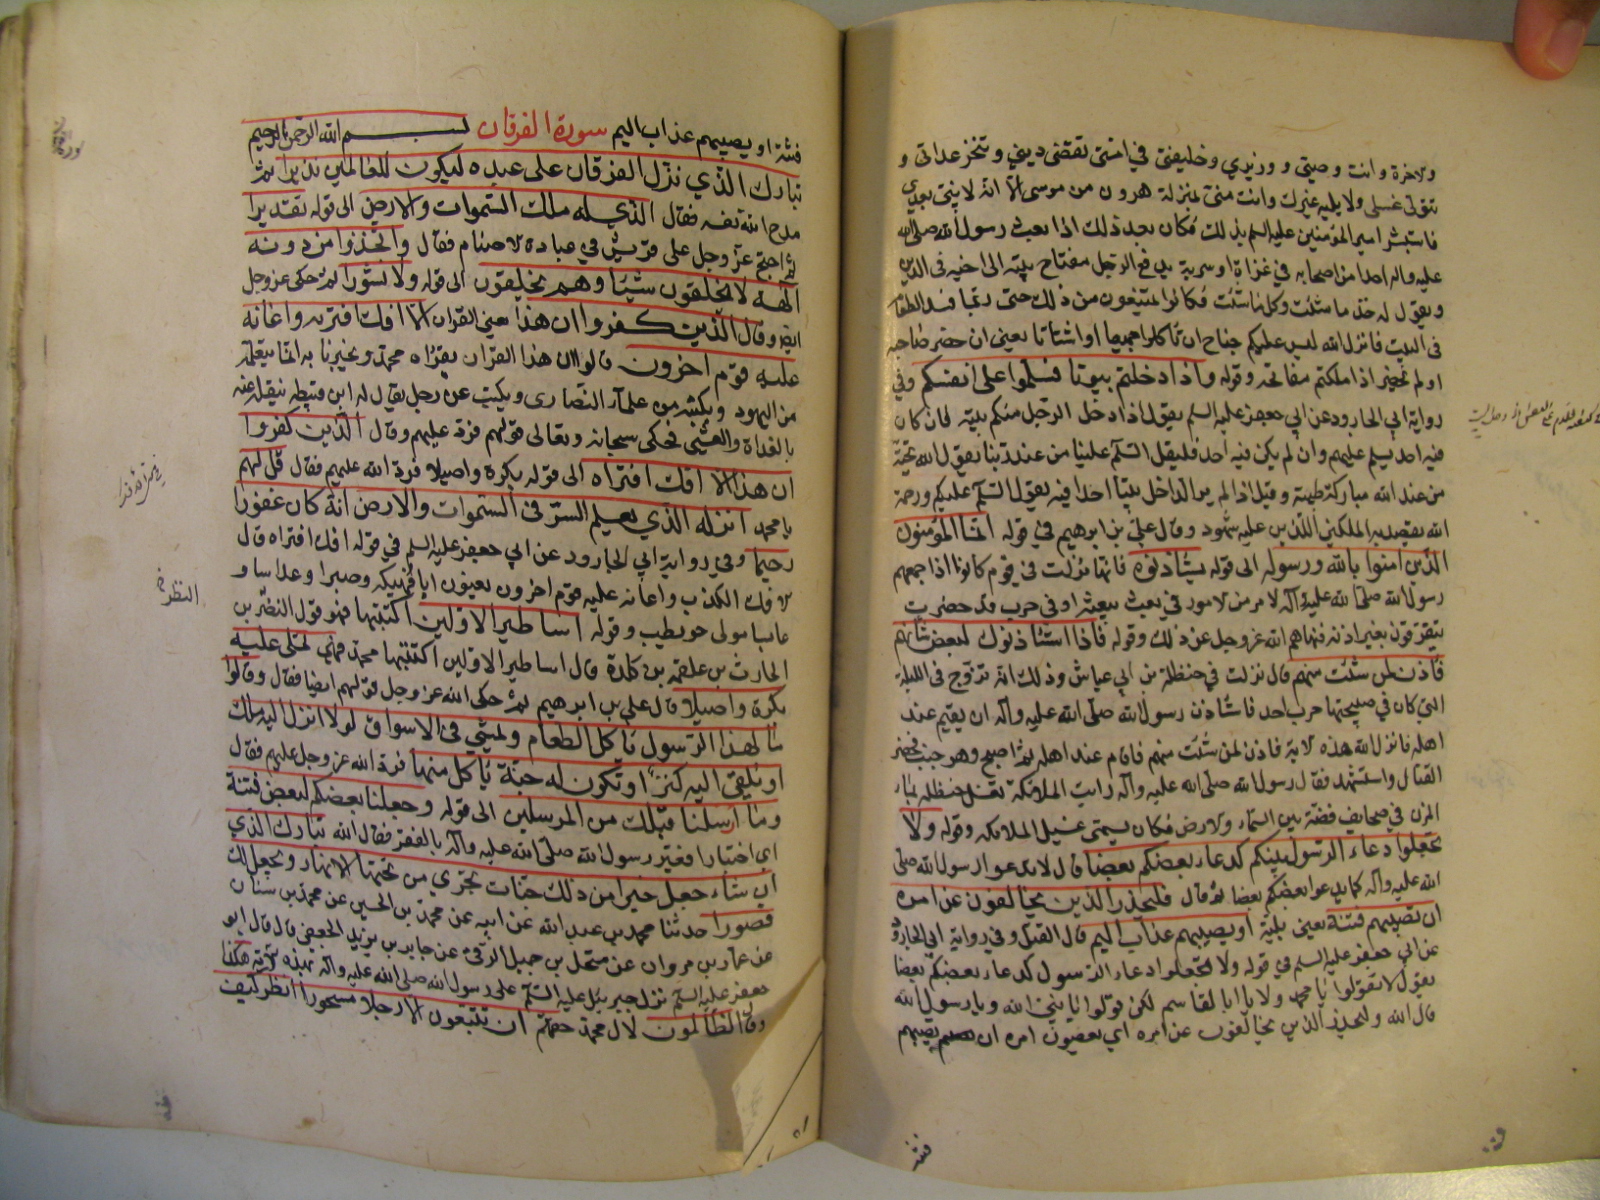 ولاخرة وانت وصيتي ووزيري وخليفتي في امتي تقضي ديني وتنجز عداتي و
تتولى غسلى ولا يليه غيرك وانت منى بمنزلة هرون من موسى الا انه لا نبى بعدي
فاستبشر امير المؤمنين عليه السلم بذلك فكان بعد ذلك اذا بعث رسول الله صلى الله
عليه واله احدا من اصحابه في غزاة او سرية يدفع الرجل مفتاح بيته الى اخيه فى الدين
ويقول له خذ ما شئت وكل ما شئت فكانوا يمتنعون من ذلك حتى ربما فسد الطعام
فى البيت فانزل الله ليس عليكم جناح ان تاكلوا جميعا او اشتاتا يعنى ان حضر صاحبه
او لم يحضر اذا ملكتم مفاتحه وقوله واذا دخلتم بيوتا فسلموا على انفسكم وفي
رواية ابي الجارود عن ابي جعفر عليه السلم يقول اذا دخل الرجل منكم بيته فان كان
فيه احد يسلم عليهم وان لم يكن فيه احد فليقل السلم علينا من عند ربنا يقول الله تحية
من عند الله مباركة طيبة وقيل اذا لم ير الداخل بيتا احدا فيه يقول السلم عليكم ورحمة
الله يقصد به الملكين اللذين عليه شهود وقال علي بن ابرهيم في قوله انما المؤمنون
الذين امنوا بالله ورسوله الى قوله يستاذنوه فانها نزلت في قوم كانوا اذا جمعهم
رسول الله صلى الله عليه وآله لامر من لامور في بعث يبعثه او في حرب قد حضرت
يتفرقون بغير اذنه فنهاهم الله عز وجل عن ذلك وقوله فاذا استئذنوك لبعض شأنهم
فأذن لمن شئت منهم قال نزلت في حنظلة بن ابي عياش وذلك انه تزوج فى الليلة
التي كان في صبيحتها حرب احد فاستأذن رسول الله صلى الله عليه وآله ان يقيم عند
اهله فانزل الله هذه لاية فاذن لمن شئت منهم فاقام عند اهله ثم اصبح وهو جنب فحضر
القتال واستشهد فقال رسول الله صلى الله عليه وآله رايت الملائكة تغسل حنظلة بماء
المزن في صحايف فضة بين السماء ولارض فكان يسمى غسيل الملائكة وقوله ولا
تجعلوا دعاء الرسول بينكم كدعاء بعضكم بعضا قال لا تدعوا رسول الله صلى
الله عليه وآله كما يدعوا بعضكم بعضا ثم قال فليحذر الذين يخالفون عن امره
ان تصيبهم فتنة يعني بلية او يصيبهم عذاب اليم قال القتل وفي رواية ابي الجارود
عن ابي جعفر عليه السلم في قوله ولا تجعلوا دعاء الرسول كدعاء بعضكم بعضا
يقول لا تقولوا يا محمد ولا يا ابا لقاسم لكن قولوا يا نبي الله ويا رسول الله
قال الله وليحذر الذين يخالفون عن امره اي يعصون امره ان تصيبهم
فتنة
فتنة او يصيبهم عذاب اليم سورة الفرقان بسم الله الرحمن الرحيم
تبارك الذي نزل الفرقان على عبده ليكون للعالمين نذيرا ثم
مدح الله نفسه فقال الذي له ملك السموات والارض الى قوله تقديرا
ثم احتج عز وجل على قريش في عبادة لاصنام فقال واتخذوا من دونه
الهة لا يخلقون شيئا وهم يخلقون الى قوله ولا نشورا ثم حكى عز وجل
ايضا وقال الذين كفروا ان هذا يعني القران الا افك افتريه واعانه
عليه قوم اخرون قالوا ان هذا القران يقراه محمد ويخبرنا به انما يتعلمه
من اليهود ويكتبه من علماء النصارى ويكتب عن رجل يقال له ابن قبيطه ينقله عنه
بالغداة والعشى فحكى سبحانه وتعالى قولهم فرد عليهم وقال الذين كفروا
ان هذا الا افك افتراه الى قوله بكرة واصيلا فرد الله عليهم فقال قل لهم
يا محمد انزله الذي يعلم السر فى السموات والارض انه كان غفورا
رحيما وفي رواية ابي الجارود عن ابي جعفر عليه السلم في قوله افك افتراه قال
لافك الكذب واعانه عليه قوم اخرون يعنون ابا فكيهه وحبرا وعداسا و
عابسا مولى حويطب وقوله اساطير الاولين اكتتبها فهو قول النضر بن
الحارث بن علقمة بن كلدة قال اساطير الاولين اكتتبها محمد فهي تملى عليه
بكرة واصيلا قال علي بن ابرهيم ثم حكى الله عز وجل قولهم ايضا فقال وقالوا
ما لهذا الرسول ياكل الطعام ويمشي في الاسواق لولا انزل اليه ملك
او يلقى اليه كنز او تكون له جنة ياكل منها فرد الله عز وجل عليهم فقال
وما ارسلنا قبلك من المرسلين الى قوله وجعلنا بعضكم لبعض فتنة
اي اختبارا فعير رسول الله صلى الله عليه وآله بالفقر فقال الله تبارك الذي
ان شاء جعل خيرا من ذلك جنات تجري من تحتها الانهار ويجعل لك
قصورا حدثنا محمد بن عبد الله عن ابيه عن محمد بن الحسين عن محمد بن سنان
عن عمار بن مروان عن منخل بن جميل الرقى عن جابر بن يزيد الجعفي قال قال ابو
جعفر عليه السلم نزل جبرئيل عليه السلم على رسول الله صلى الله عليه وآله بهذه لاية هكذا
وقال الظالمون لال محمد حقهم ان تتبعون الا رجلا مسحورا انظر كيف
النظرة